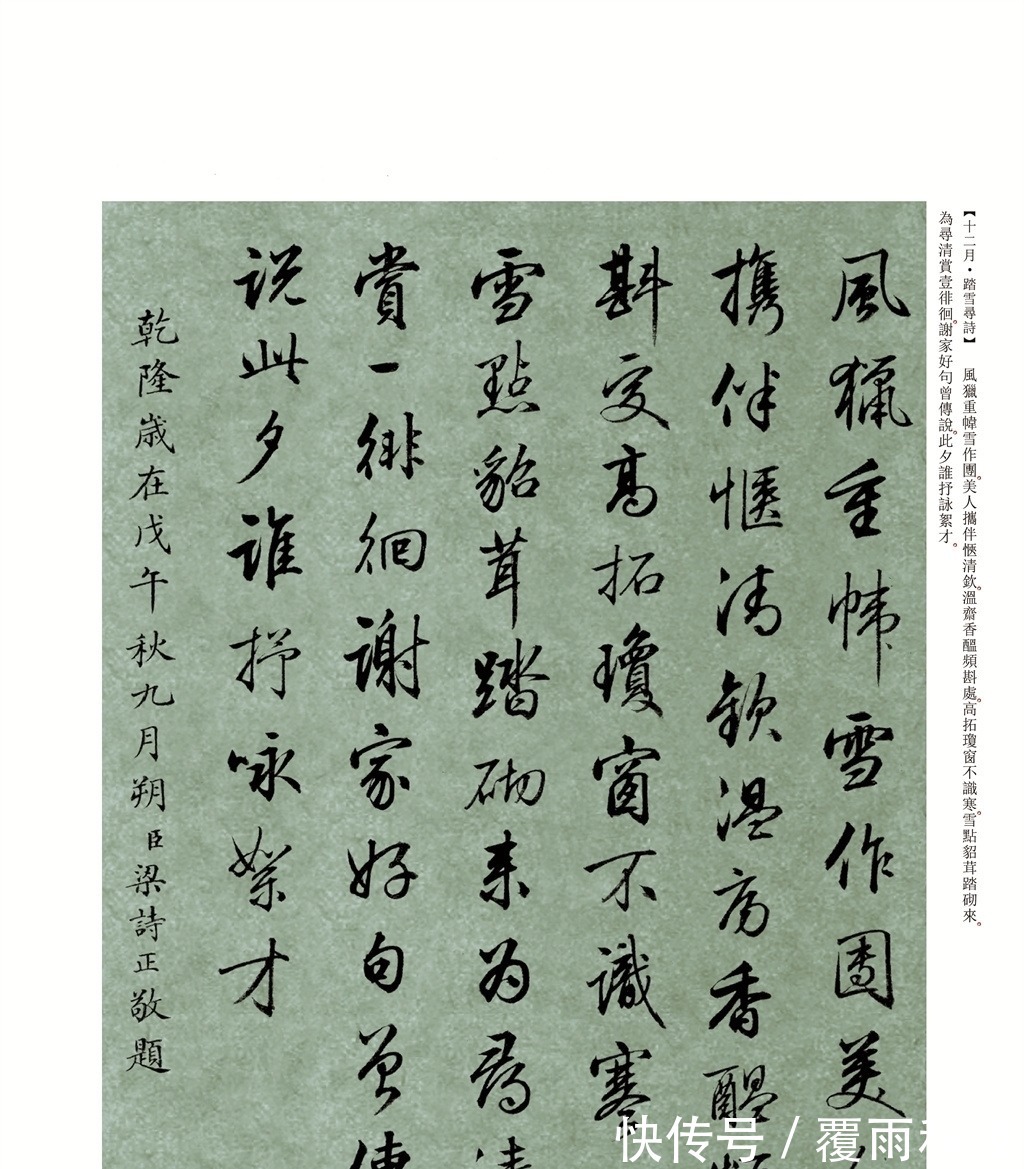 【十二月·踏雪尋詩】 風獵重幃雪作團。美人攜伴愜清欽。溫齋香醞頻斟處。高拓瓊窗不識寒。雪點貂茸踏砌來。
為尋清賞壹徘徊。謝家好句曾傳說。此夕誰抒詠絮才。
風獵重幃雪作團美
携伴愜清欽温斋香醖
斟處高拓瓊窗不識寒
雪點貂茸踏砌來为尋清
賞一徘徊謝家好句曾傳
说此夕誰抒咏絮才
乾隆歲在戊午秋九月朔臣梁詩正敬題
快传号/覆雨